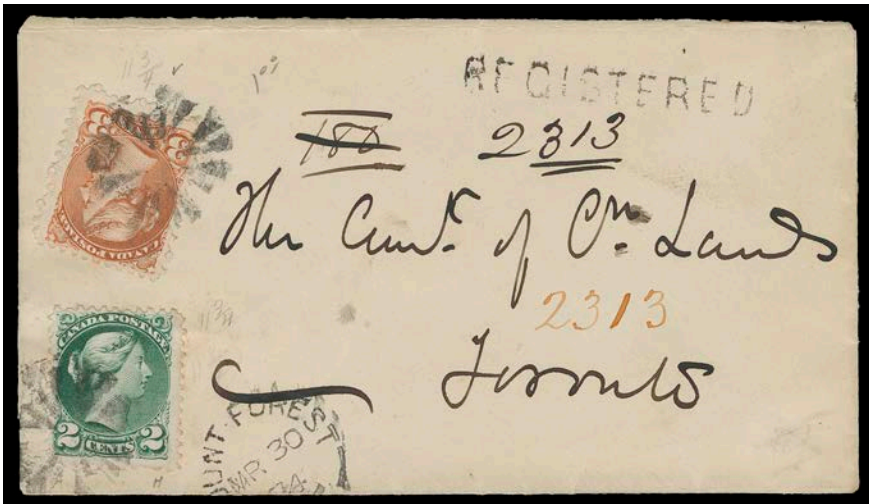 REGISTERED
180 2313
The Comr. of Cn. Lands
2313
Toronto
3 3
CANADA POSTAGE
CANADA POSTAGE
2 CENTS 2
MOUNT FOREST
MR 30